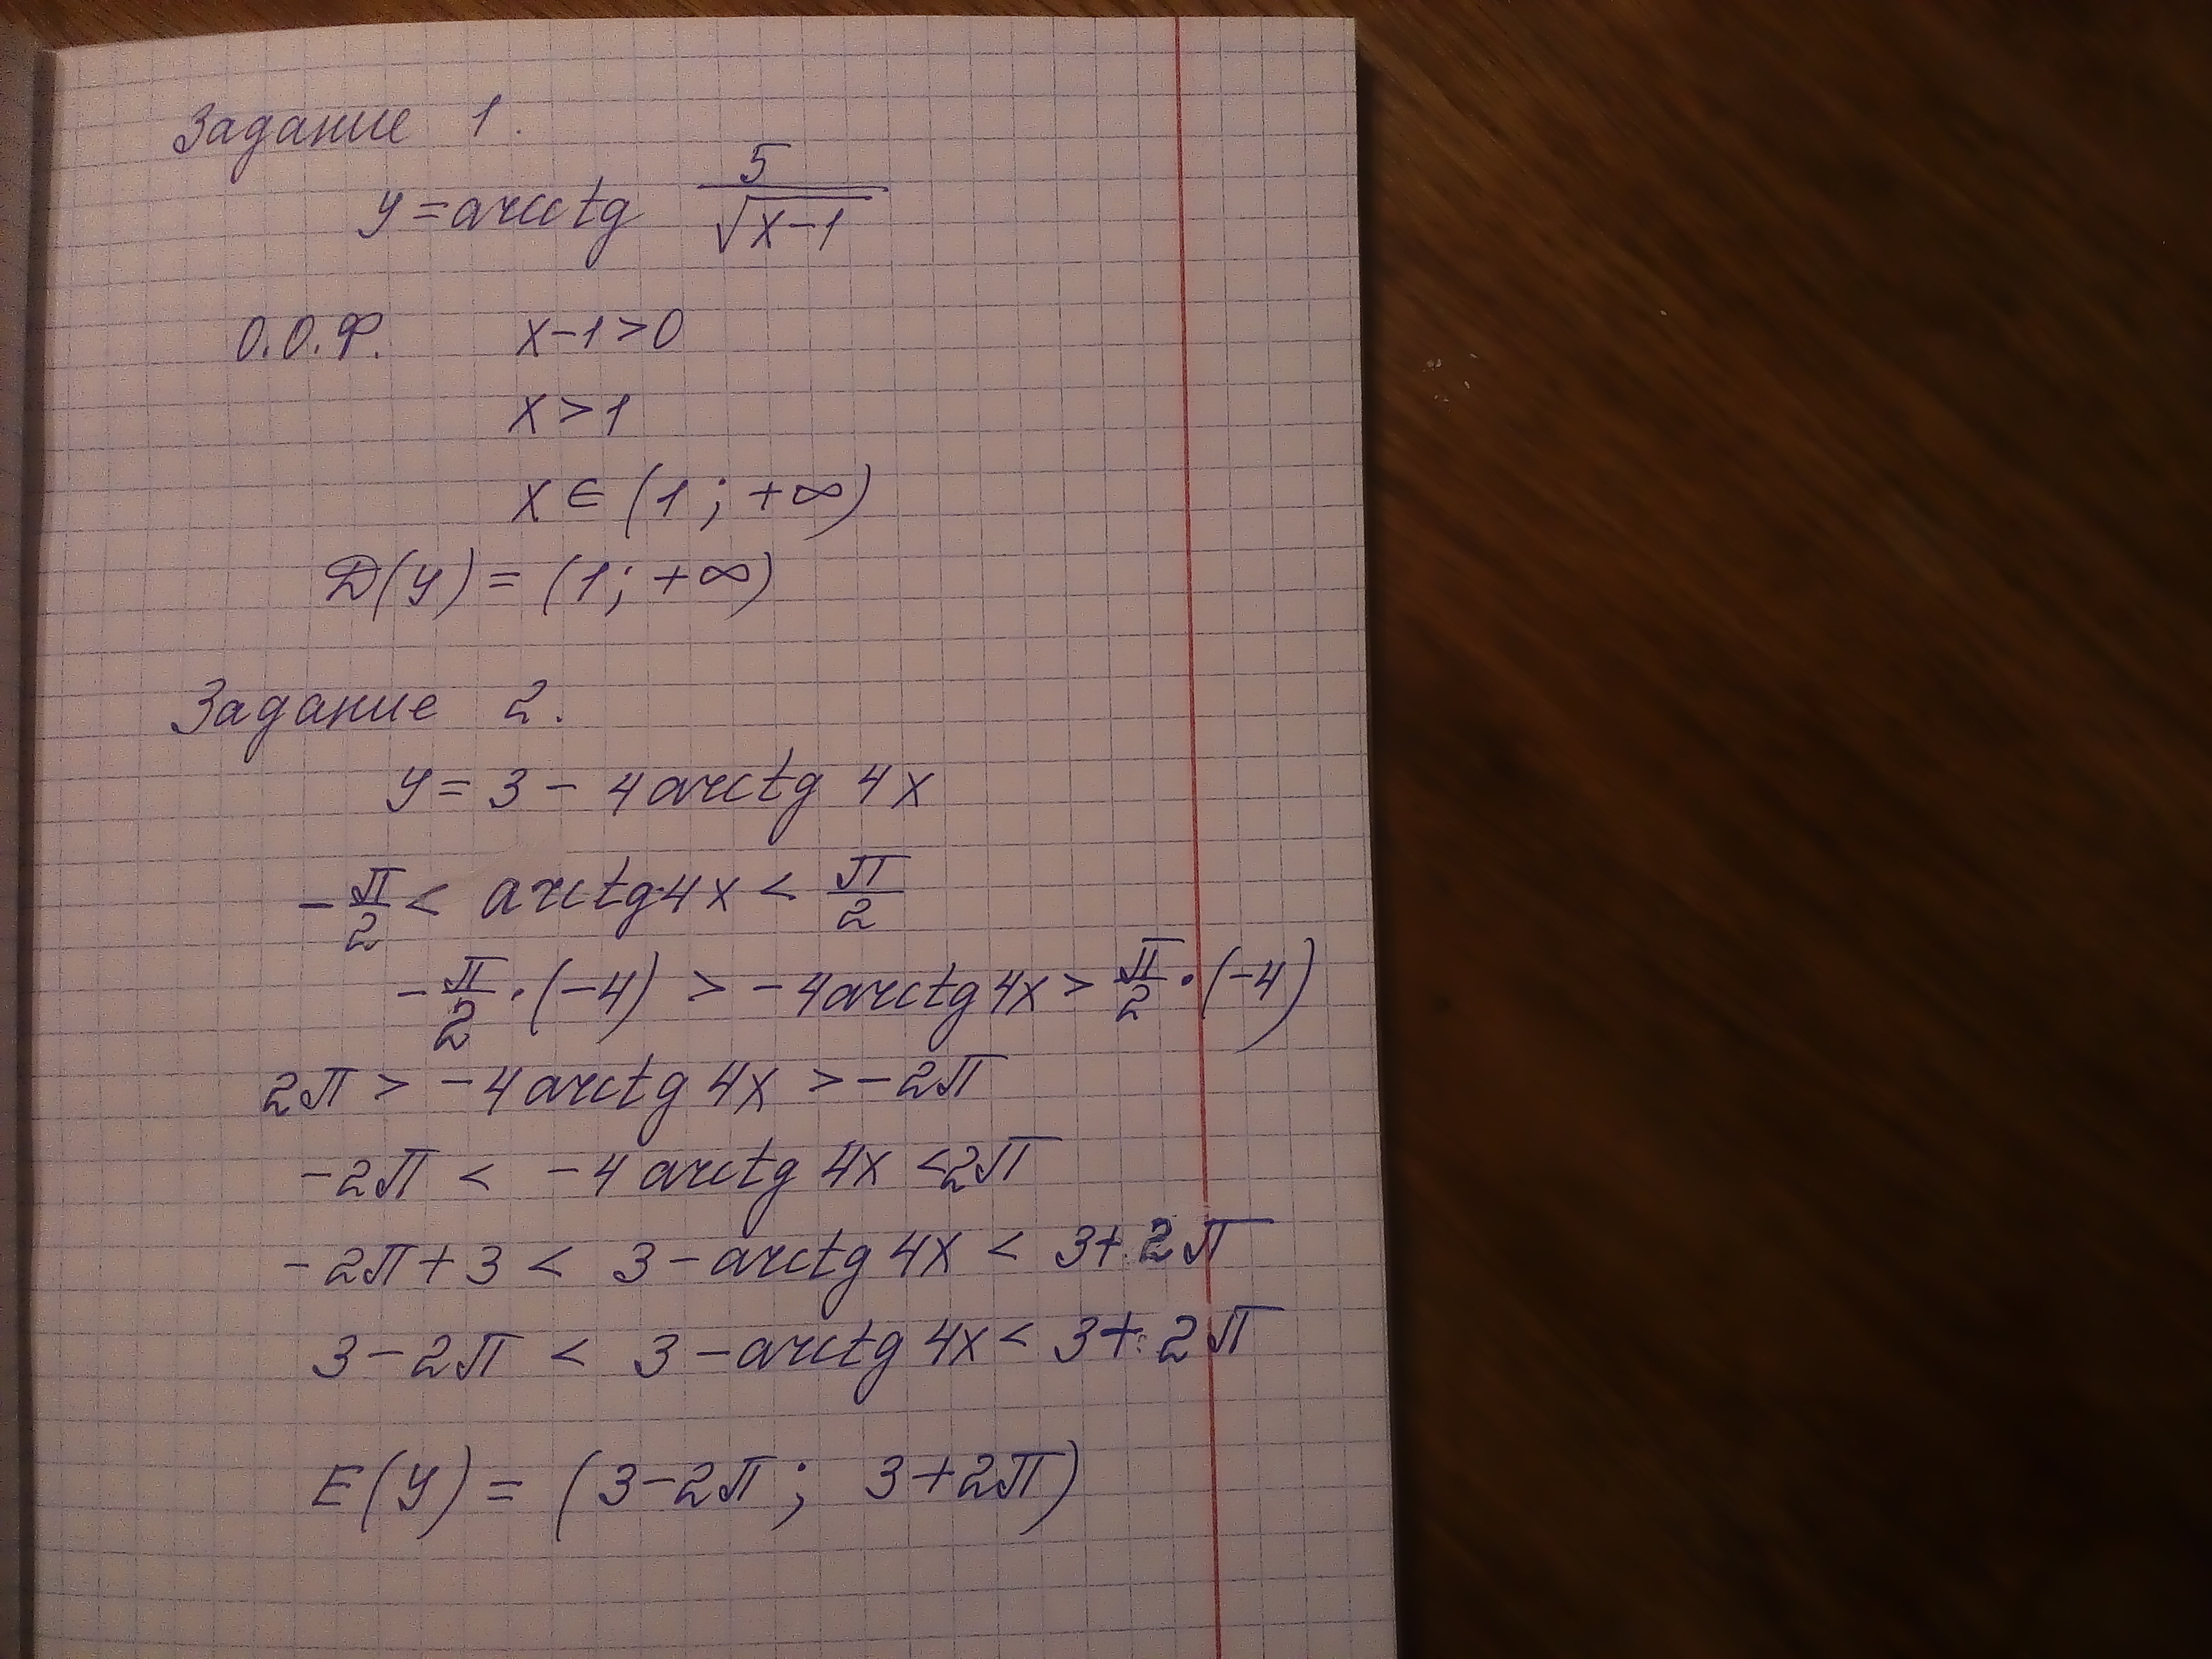 Задание 1.
y = arcctg 5/√(x-1)
О.О.Ф. x-1>0
x>1
x ∈ (1; +∞)
D(y) = (1; +∞)
Задание 2.
y = 3 - 4 arctg 4x
-π/2 < arctg 4x < π/2
-π/2 · (-4) > -4 arctg 4x > π/2 · (-4)
2π > -4 arctg 4x > -2π
-2π < -4 arctg 4x < 2π
-2π + 3 < 3 - arctg 4x < 3 + 2π
3 - 2π < 3 - arctg 4x < 3 + 2π
E(y) = (3-2π; 3+2π)